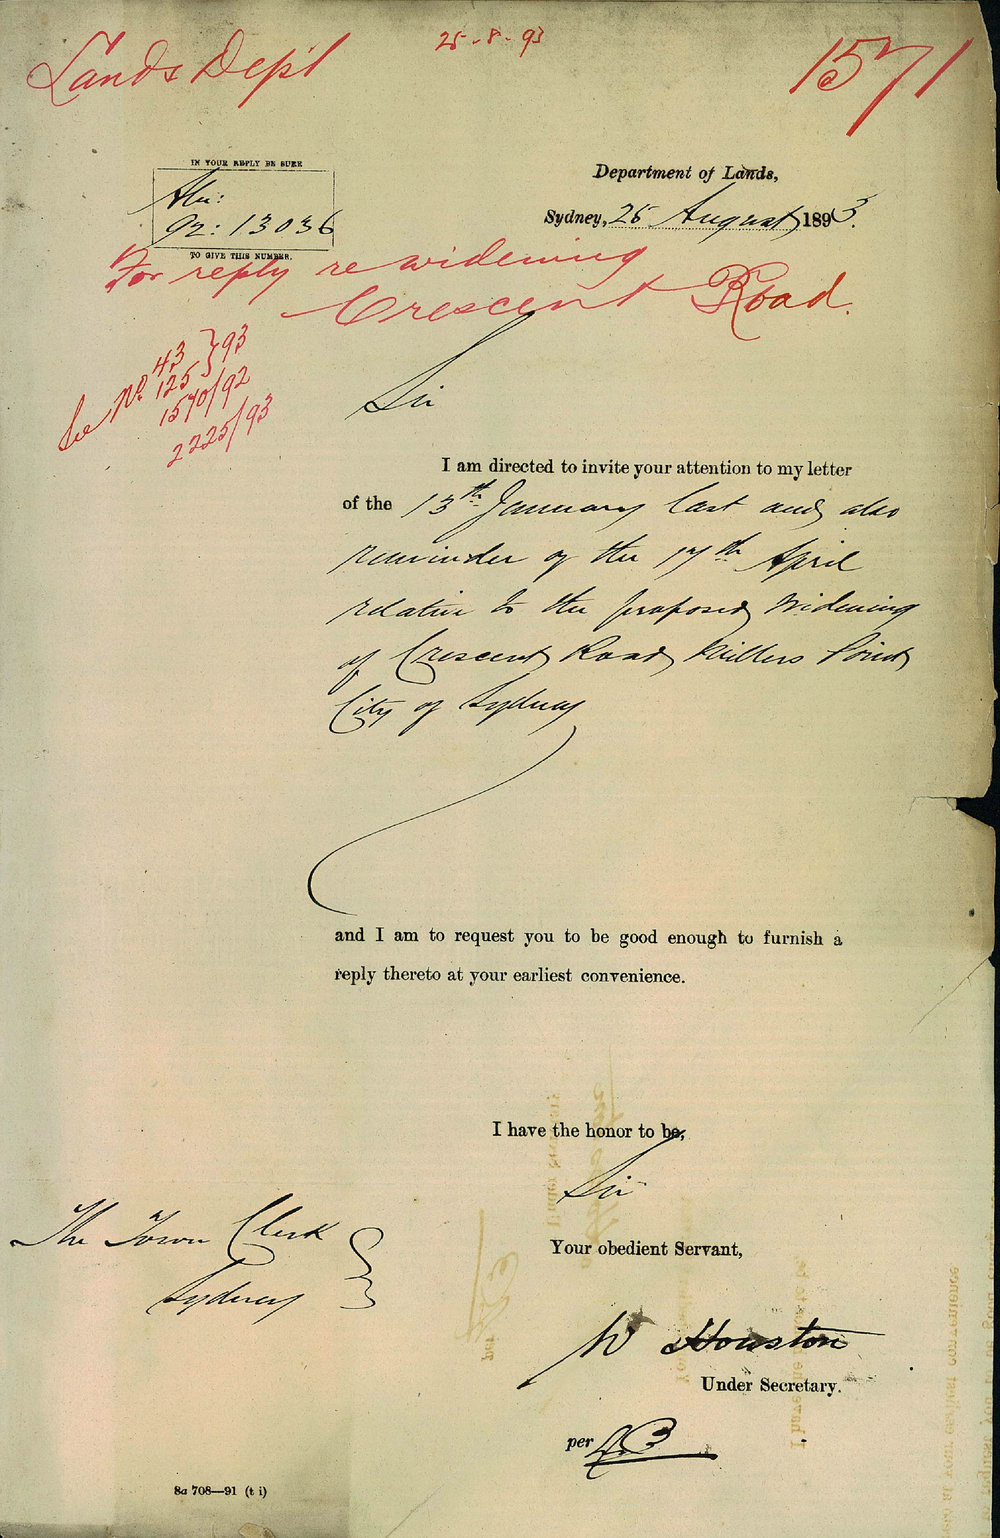 Lands Dept
25-8-93
1571
IN YOUR REPLY BE SURE
Aln:
92:13036
TO GIVE THIS NUMBER.
Department of Lands,
Sydney, 25 August 1893.
For reply re widening
Crescent Road.
See No. 43 } 93
125
1570/92
2225/93
Sir
I am directed to invite your attention to my letter
of the 13th January last and also
reminder of the 17th April
relative to the proposed widening
of Crescent Road Millers Point
City of Sydney
and I am to request you to be good enough to furnish a
reply thereto at your earliest convenience.
I have the honor to be,
Sir
Your obedient Servant,
The Town Clerk
Sydney
W Houston
Under Secretary.
per
8a 708—91 (t i)